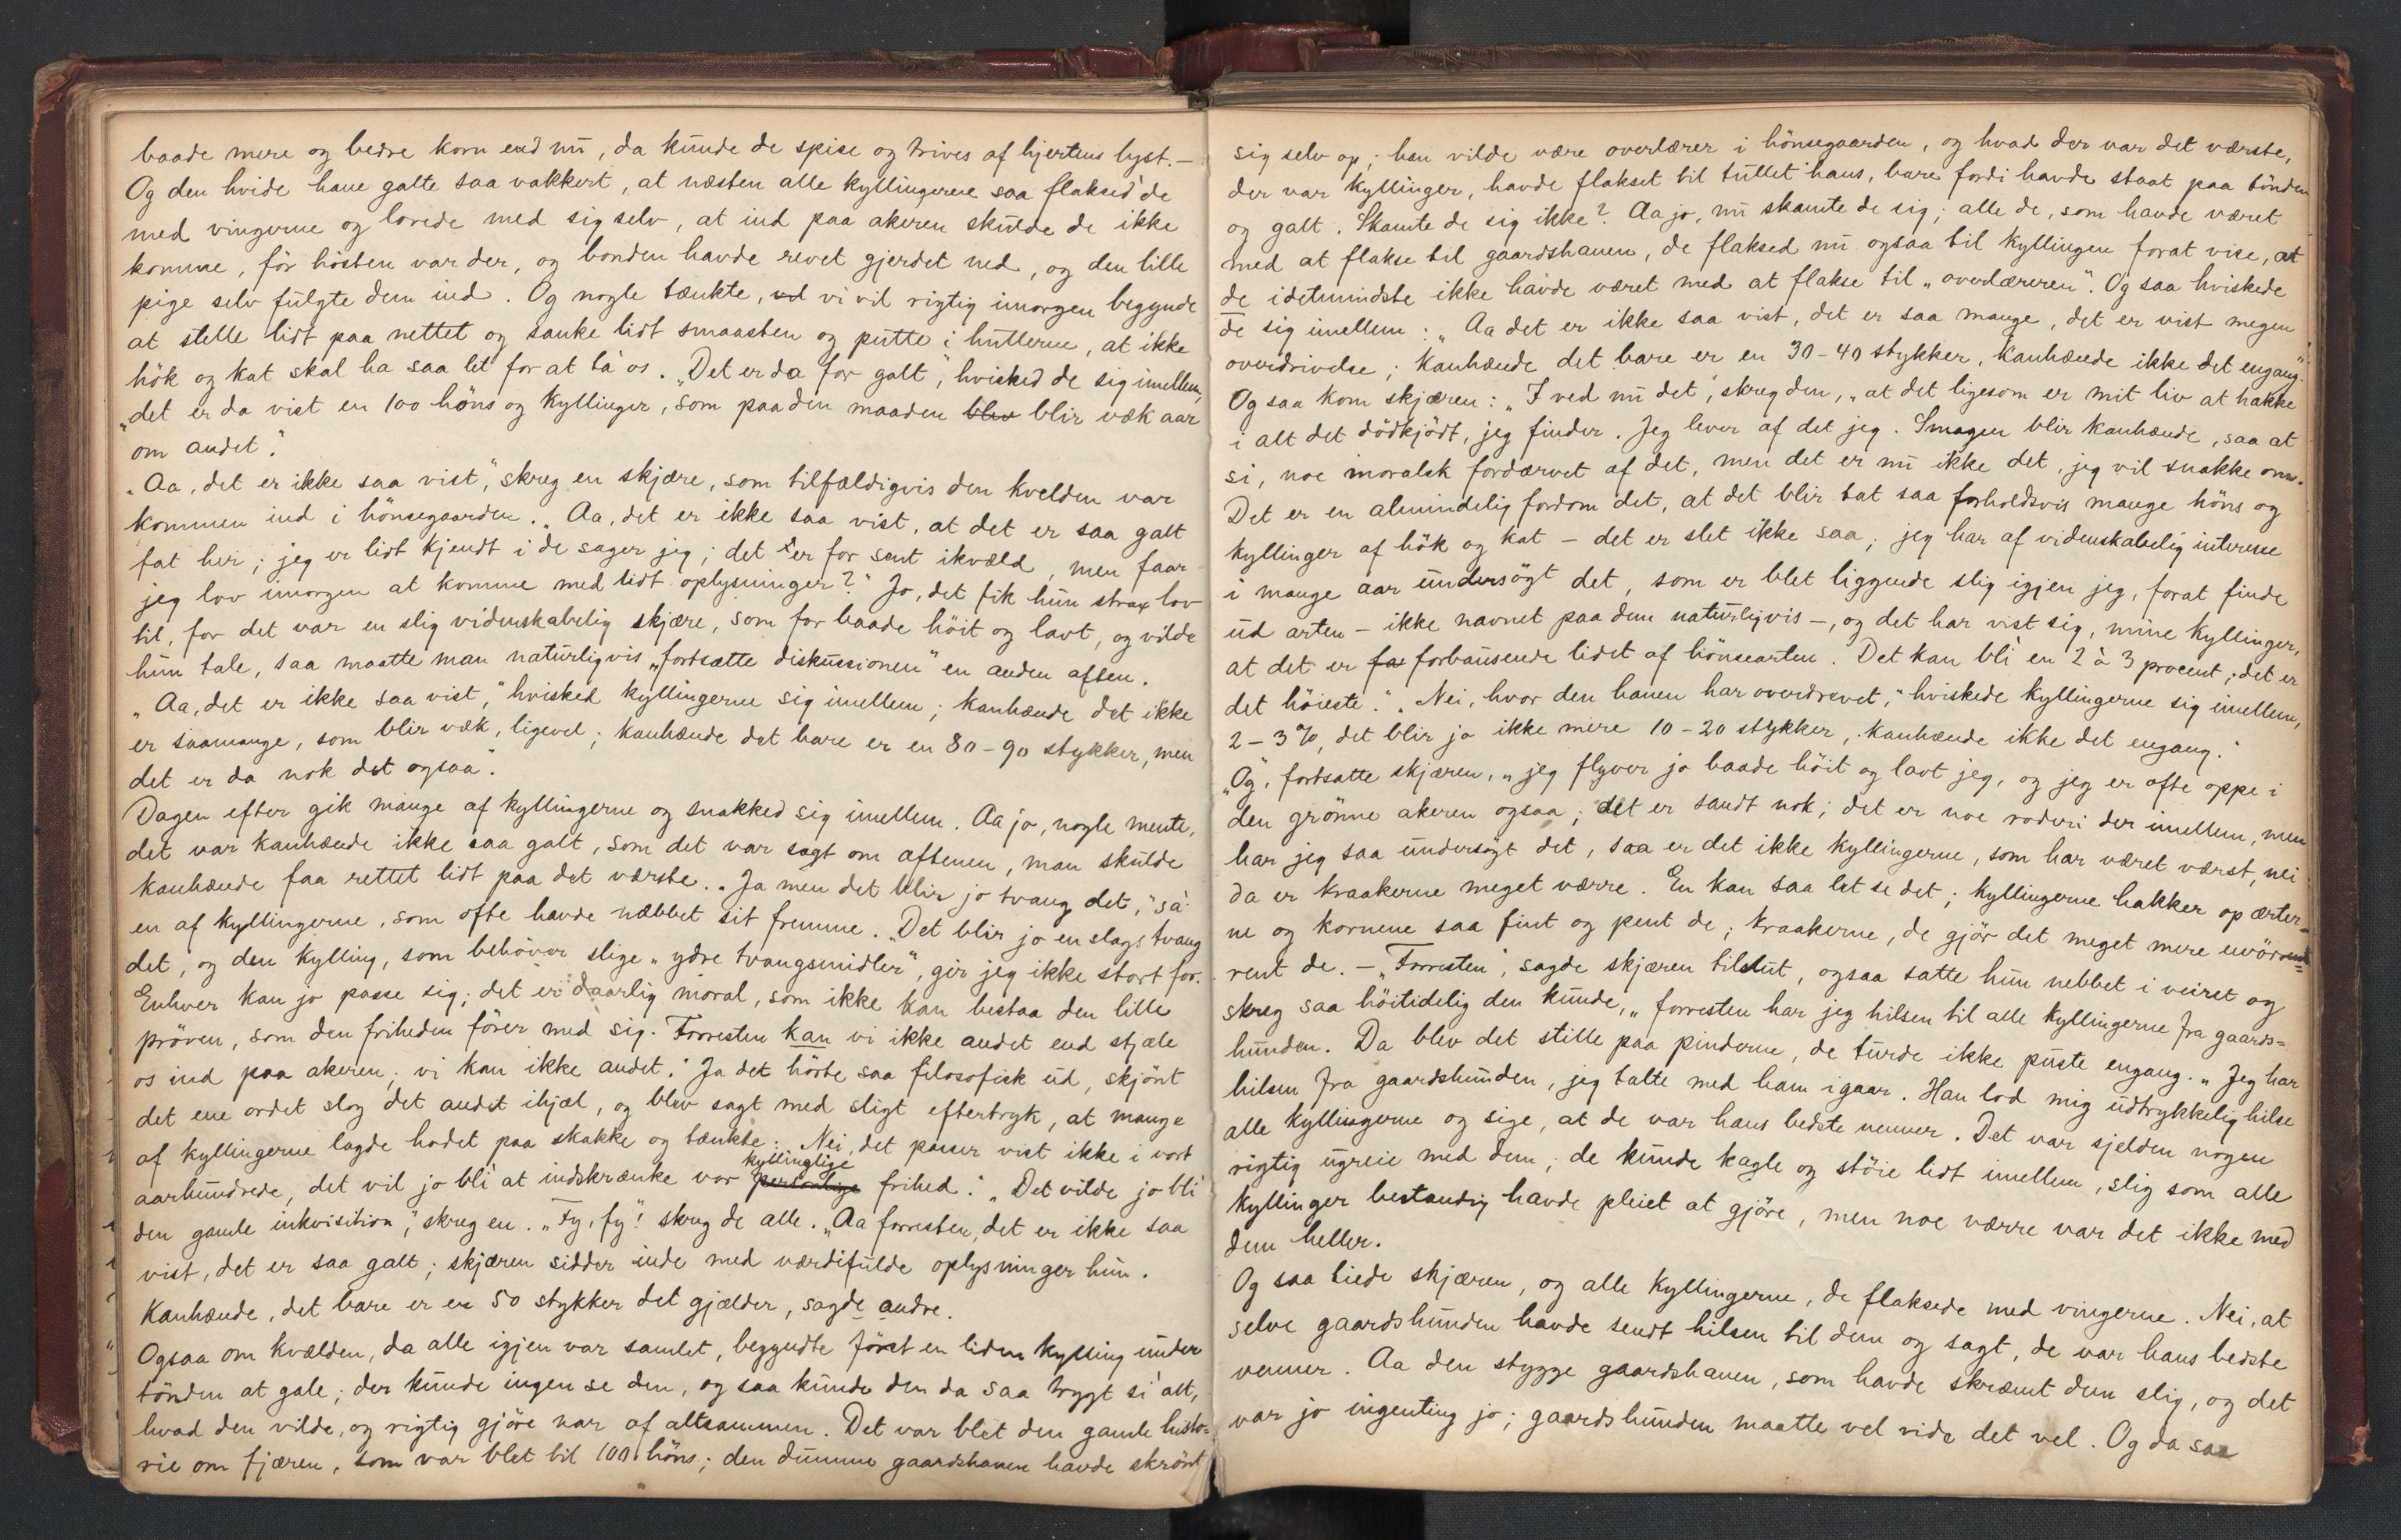 baade mere og bedre korn end nu, da kunde de spise og trives af hjertens lyst. –
Og den hvide hane galte saa vakkert, at næsten alle kyllingerne saa flaksed de
med vingerne og lovede med sig selv, at ind paa akeren skulde de ikke
komme, för hösten var der, og bonden havde revet gjerdet ned, og den lille
pige selv fulgte dem ind. Og nogle tænkte, ud vi vil rigtig imorgen begynde
at stelle lidt paa nettet og sanke lidt smaasten og putte i hullerne, at ikke
hök og kat skal ha saa let for at ta' os. „Det er da for galt," hvisked de sig imellem,
„det er da vist en 100 höns og kyllinger, som paa den maaden blev blir væk aar
om andet".
„Aa, det er ikke saa vist," skreg en skjære, som tilfældigvis den kvelden var
kommen ind i hönsegaarden. „Aa, det er ikke saa vist, at det er saa galt
fat her; jeg er lidt kjendt i de sager jeg; det er for sent ikvæld, men faar
jeg lov imorgen at komme med lidt oplysninger?" Jo, det fik hun strax lov
til, for det var en slig videnskabelig skjære, som for baade höit og lavt, og vilde
hun tale, saa maatte man naturligvis „fortsætte diskussionen" en anden aften.
„Aa, det er ikke saa vist," hvisked kyllingerne sig imellem; kanhænde det ikke
er saamange, som blir væk, ligevel; kanhænde det bare er en 80-90 stykker, men
det er da nok det ogsaa".
Dagen efter gik mange af kyllingerne og snakked sig imellem. Aa jo, nogle mente,
det var kanhænde ikke saa galt, som det var sagt om aftenen, man skulde
kanhænde faa rettet lidt paa det værste. „Ja men det blir jo tvang det," sa'
en af kyllingerne, som ofte havde næbbet sit fremme. „Det blir jo en slags tvang
det, og den kylling, som behöver slige „ydre tvangsmidler", gir jeg ikke stort for.
Enhver kan jo passe sig; det er daarlig moral, som ikke kan bestaa den lille
pröven, som den friheden förer med sig. Forresten kan vi ikke andet end stjæle
os ind paa akeren; vi kan ikke andet." Ja det hörte saa filosofisk ud, skjönt
det ene ordet slog det andet ihjæl, og blev sagt med sligt eftertryk, at mange
af kyllingerne lagde hodet paa skakke og tænkte: „Nei, det passer vist ikke i vort
aarhundrede, det vil jo bli' at indskrænke vor personlige kyllinglige frihed." „Det vilde jo bli'
den gamle inkvisition," skreg en. „Fy, fy"! skreg de alle. „Aa forresten, det er ikke saa
vist, det er saa galt; skjæren sidder inde med værdifulde oplysninger hun.
Kanhænde, det bare er en 50 stykker det gjælder, sagde andre.
Ogsaa om kvælden, da alle igjen var samlet, begyndte först en liden kylling under
tönden at gale; der kunde ingen se den, og saa kunde den da saa trygt si' alt,
hvad den vilde, og rigtig gjöre nar af altsammen. Det var blet den gamle histo-
rie om fjæren, som var blet til 100 höns; den dumme gaardshanen havde skrönt
sig selv op; han vilde være overlærer i hönsegaarden, og hvad der var det værste,
der var kyllinger, havde flakset til tullet hans, bare fordi havde staat paa tönden
og galt. Skamte de sig ikke? Aa jo, nu skamte de sig; alle de, som havde været
med at flakse til gaardshanen, de flaksed nu ogsaa til kyllingen forat vise, at
de idetmindste ikke havde været med at flakse til „overlæreren". Og saa hviskede
de sig imellem: „Aa det er ikke saa vist, det er saa mange, det er vist megen
overdrivelse; kanhænde det bare er en 30-40 stykker, kanhænde ikke det engang."
Og saa kom skjæren: „I ved nu det", skreg den, „at det ligesom er mit liv at hakke
i alt det dödkjödt, jeg finder. Jeg lever af det jeg. Smagen blir kanhænde, saa at
si, noe moralsk fordærvet af det, men det er nu ikke det, jeg vil snakke om.
Det er en almindelig fordom det, at det blir tat saa forholdsvis mange höns og
kyllinger af hök og kat – det er slet ikke saa; jeg har af videnskabelig interesse
i mange aar undersögt det, som er blet liggende slig igjen jeg, forat finde
ud arten – ikke navnet paa dem naturligvis –, og det har vist sig, mine kyllinger,
at det er for forbausende lidet af hönsearten. Det kan bli' en 2 à 3 procent; det er
det höieste." „Nei, hvor den hanen har overdrevet," hviskede kyllingerne sig imellem,
2-3%, det blir jo ikke mere 10-20 stykker, kanhænde ikke det engang."
„Og", fortsatte skjæren, „jeg flyver jo baade höit og lavt jeg, og jeg er ofte oppe i
den grönne akeren ogsaa; det er sandt nok; det er noe roderi der imellem, men
har jeg saa undersögt det, saa er det ikke kyllingerne, som har været værst, nei
da er kraakerne meget værre. En kan saa let se det; kyllingerne hakker op ærter-
ne og kornene saa fint og pent de; kraakerne, de gjör det meget mere uvören-
rent de. – „Forresten", sagde skjæren tilslut, ogsaa satte hun nebbet i veiret og
skreg saa höitidelig den kunde, „forresten har jeg hilsen til alle kyllingerne fra gaards=
hunden. Da blev det stille paa pinderne, de turde ikke puste engang. „Jeg har
hilsen fra gaardshunden, jeg talte med ham igaar. Han lod mig udtrykkelig hilse
alle kyllingerne og sige, at de var hans bedste venner. Det var sjelden nogen
rigtig ugreie med dem; de kunde kagle og stöie lidt imellem, slig som alle
kyllinger bestandig havde pleiet at gjöre, men noe værre var det ikke med
dem heller.
Og saa tiede skjæren, og alle kyllingerne, de flaksede med vingerne. Nei, at
selve gaardshunden havde sendt hilsen til dem og sagt, de var hans bedste
venner. Aa den stygge gaardshanen, som havde skræmt dem slig, og det
var jo ingenting jo; gaardshunden maatte vel vide det vel. Og da saa